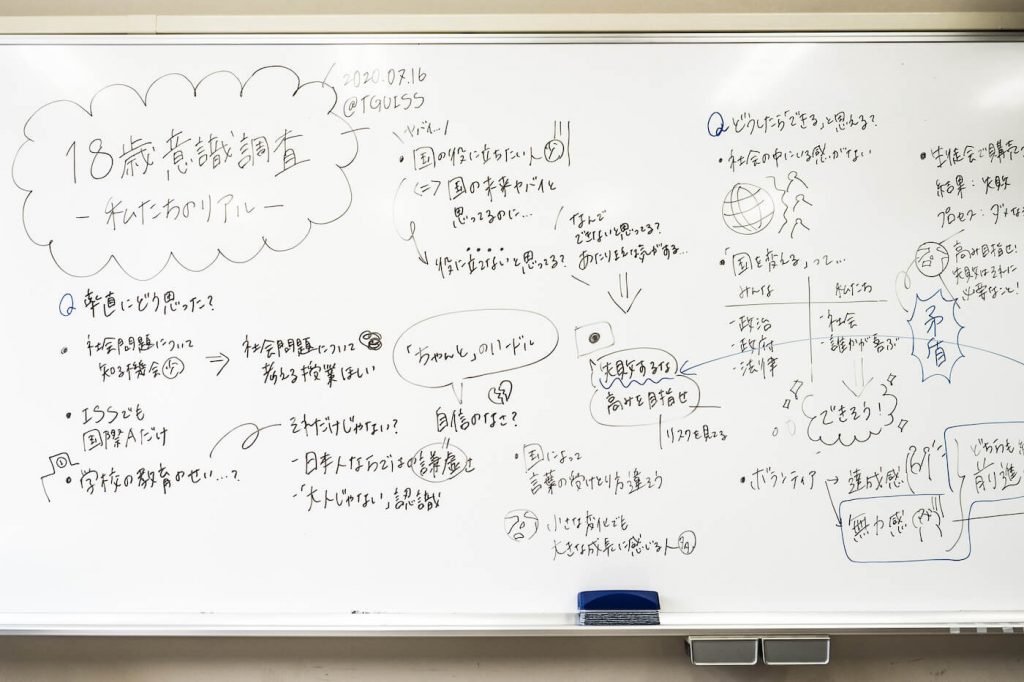 18歳意識調査
―私たちのリアル―
2020.07.16
@TGUISS
Q 率直にどう思った?
・社会問題について
知る機会少
⇒ 社会問題について
考える授業ほしい
・ISSでも
国際Aだけ
・学校の教育のせい…?
それだけじゃない?
-日本人ならではの謙虚さ
-「大人じゃない」認識
「ちゃんと」のハードル
自信のなさ?
ヤバイ…!
・国の役に立ちたい人少
<=> 国の未来ヤバイと
思ってるのに…
役に立てないと思ってる?
なんで
できないと思ってる?
あたりまえな気がする…
失敗するな
高みを目指せ
リスクを見てる
・国によって
言葉の受けとり方違そう
小さな変化でも
大きな成長に感じる人
Q どうしたら「できる」と思える?
・社会の中にいる感がない
・「国を変える」って…
みんな
・政治
・政府
・法律
私たち
・社会
・誰かが喜ぶ
できそう!
・ボランティア
達成感
無力感
どちらも
前進
・生徒会で購売
結果:失敗
プロセス:ダメな
高み目指せ!
失敗はそれに
必要なこと!
矛盾